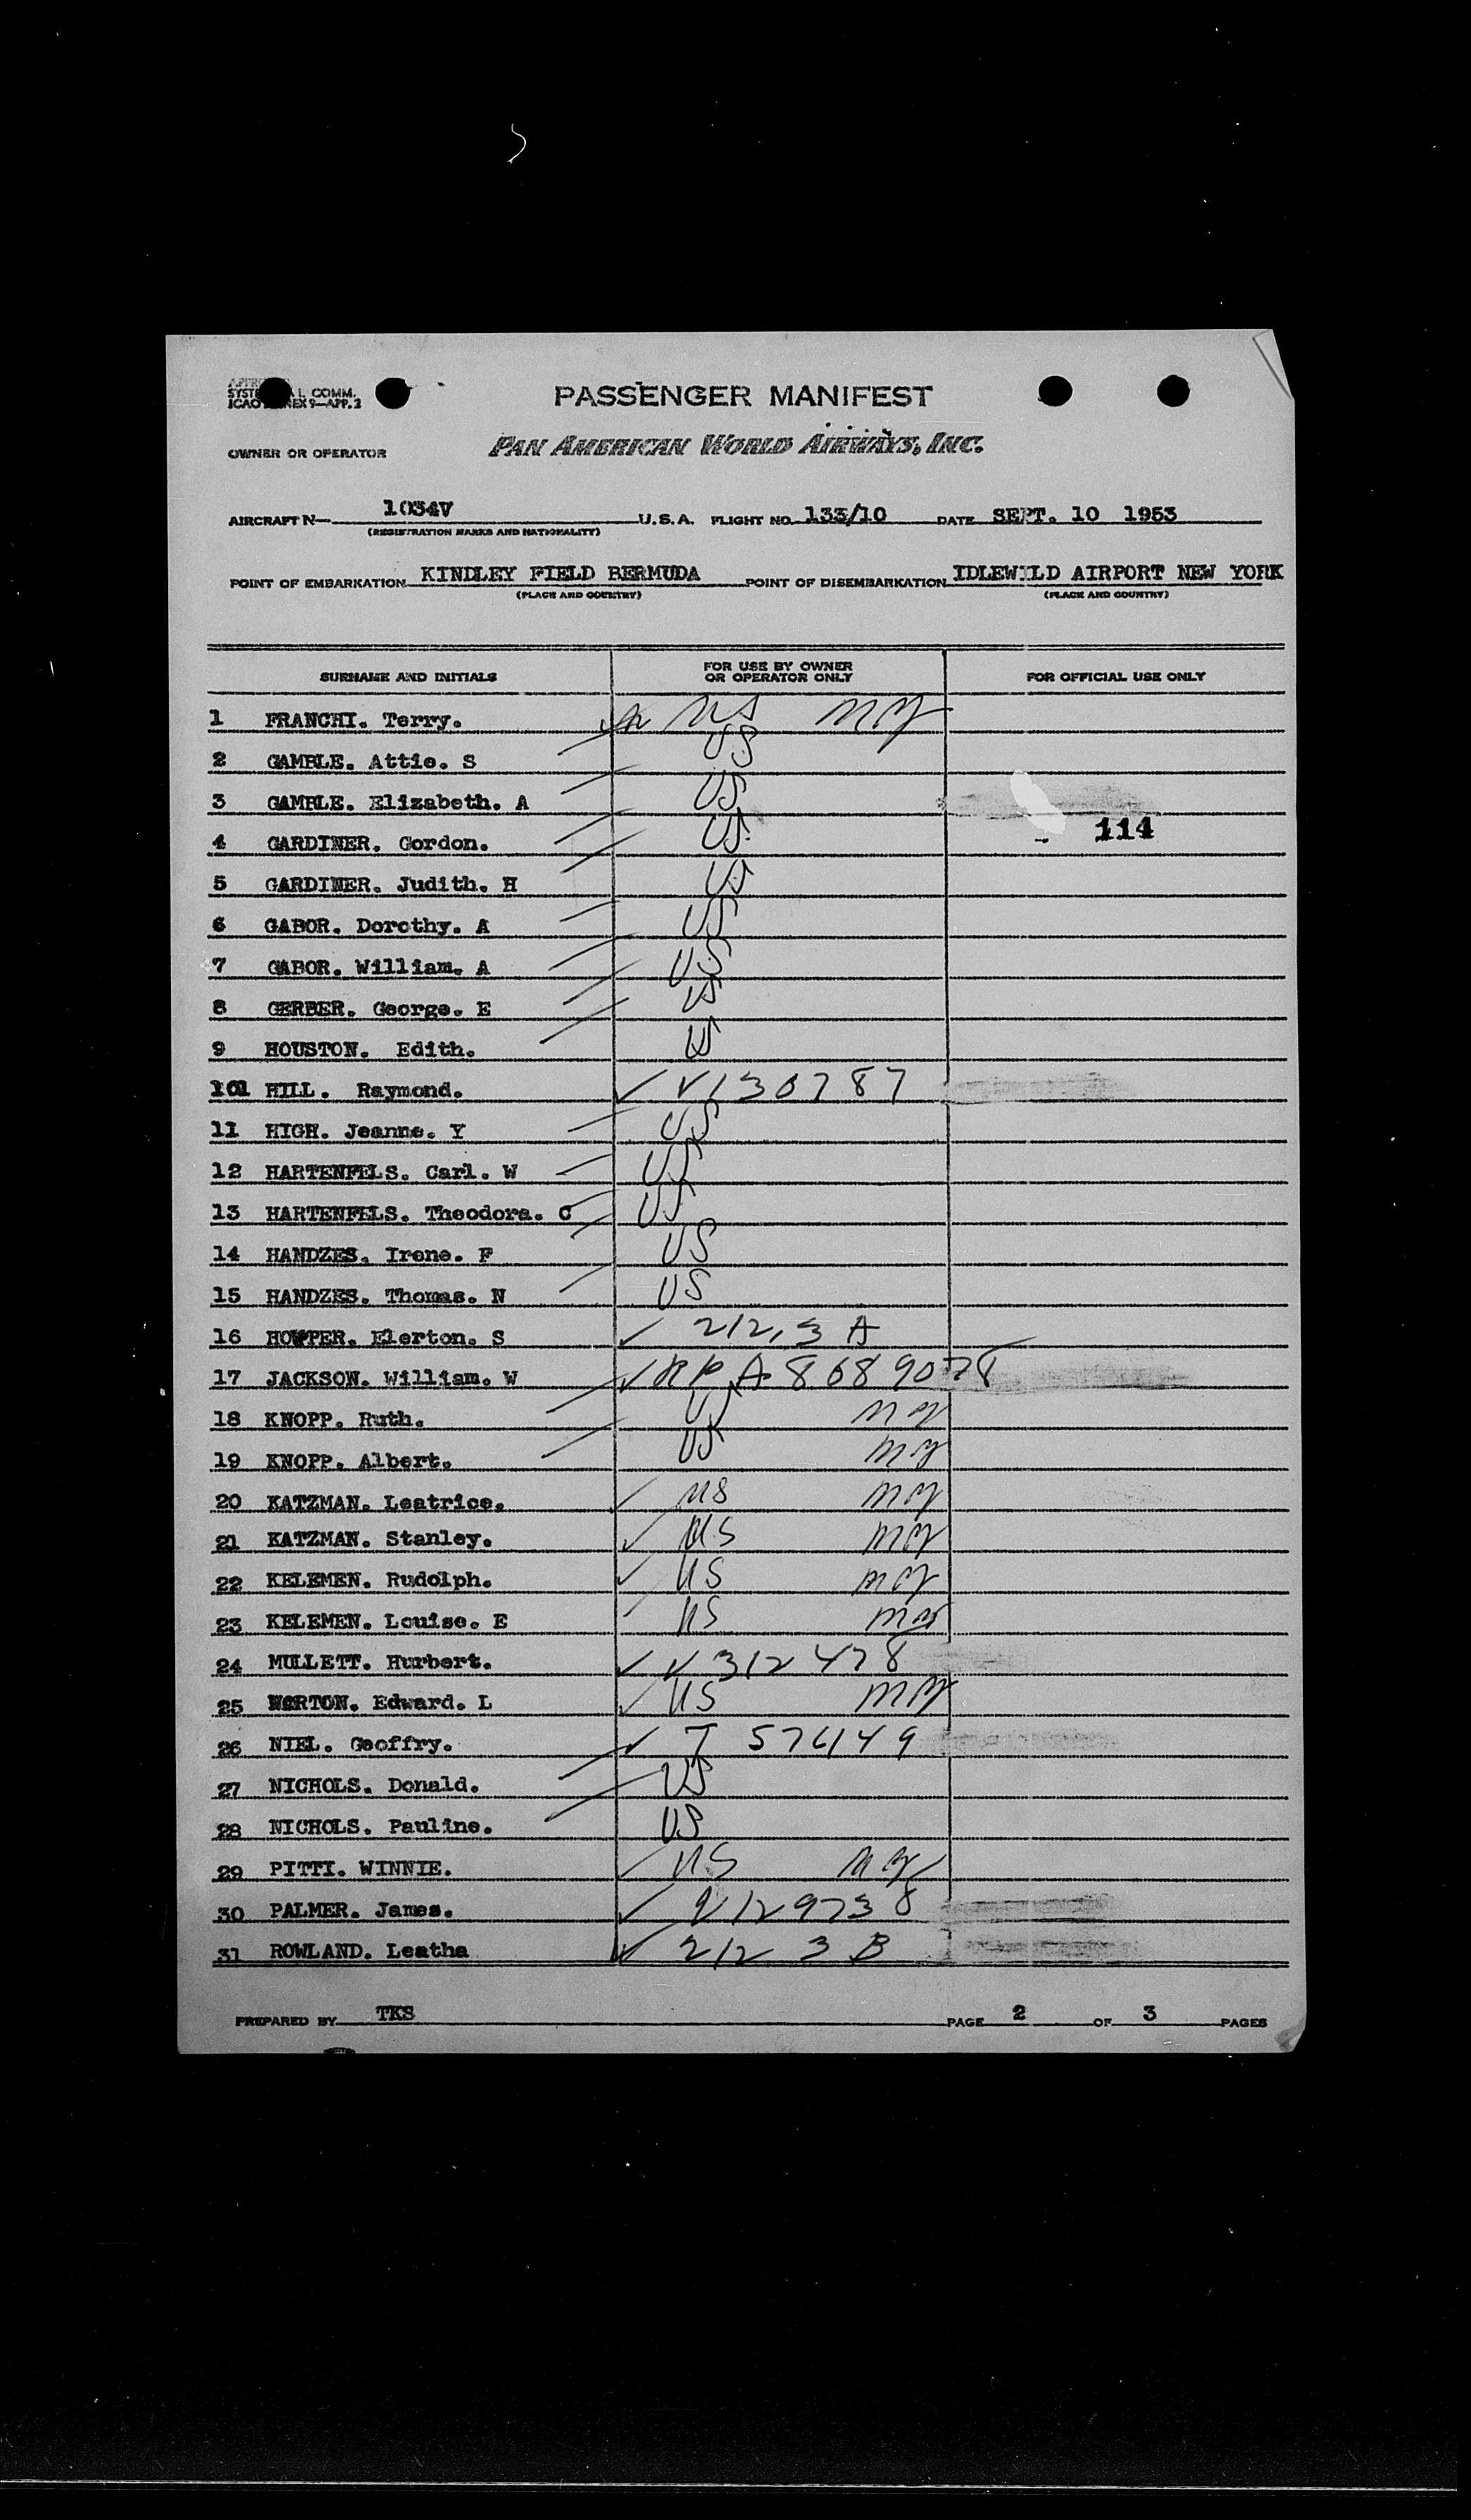 PASSENGER MANIFEST
L COMM.
ICAO ANNEX 9—APP. 2
OWNER OR OPERATOR PAN AMERICAN WORLD AIRWAYS, INC.
AIRCRAFT N— 1034V U.S.A. FLIGHT NO. 133/10 DATE SEPT. 10 1953
(REGISTRATION MARKS AND NATIONALITY)
POINT OF EMBARKATION KINDLEY FIELD BERMUDA POINT OF DISEMBARKATION IDLEWILD AIRPORT NEW YORK
(PLACE AND COUNTRY) (PLACE AND COUNTRY)
SURNAME AND INITIALS FOR USE BY OWNER OR OPERATOR ONLY FOR OFFICIAL USE ONLY
1 FRANCHI. Terry. US
2 GAMBLE. Attie. S US
3 GAMBLE. Elizabeth. A US
4 GARDINER. Gordon. US 114
5 GARDINER. Judith. H US
6 GABOR. Dorothy. A US
7 GABOR. William. A US
8 GERBER. George. E US
9 HOUSTON. Edith. US
10 HILL. Raymond. ✓ V130787
11 HIGH. Jeanne. Y US
12 HARTENFELS. Carl. W US
13 HARTENFELS. Theodora. C US
14 HANDZES. Irene. F US
15 HANDZES. Thomas. N US
16 HOPPER. Elerton. S ✓ 212.3 A
17 JACKSON. William. W ✓ RP A8689078
18 KNOPP. Ruth. US
19 KNOPP. Albert. US
20 KATZMAN. Leatrice. ✓ US
21 KATZMAN. Stanley. ✓ US
22 KELEMEN. Rudolph. ✓ US
23 KELEMEN. Louise. E US
24 MULLETT. Hurbert. ✓ V312478
25 NORTON. Edward. L ✓ US
26 NIEL. Geoffry. ✓ T 576149
27 NICHOLS. Donald. US
28 NICHOLS. Pauline. US
29 PITTI. WINNIE. ✓ US
30 PALMER. James. ✓ V129738
31 ROWLAND. Leatha ✓ 212 3 B
PREPARED BY TKS PAGE 2 OF 3 PAGES